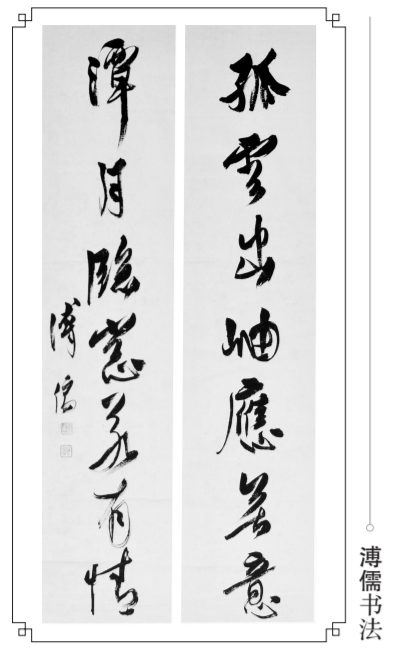 孤雲出岫應無意
潭月臨窓若有情
溥儒
溥儒书法